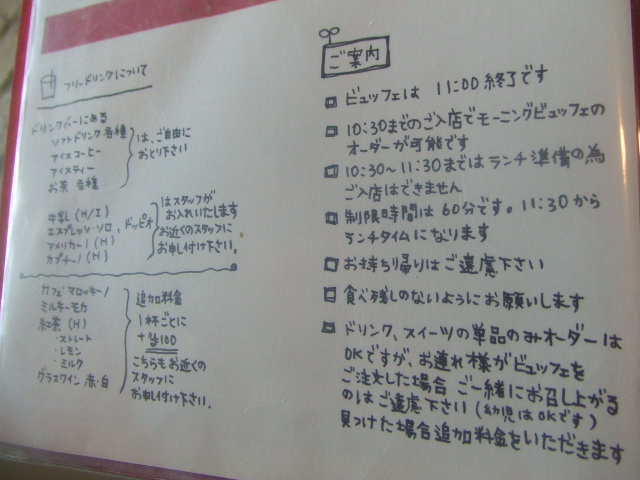 フリードリンクについて
ドリンクバーにある
ソフトドリンク各種
アイスコーヒー
アイスティー
お茶 各種
は、ご自由に
おとり下さい
牛乳 (H/I)
エスプレッソ・ソロ、ドッピオ
アメリカーノ (H)
カプチーノ (H)
はスタッフが
お入れいたします
お近くのスタッフに
お申し付け下さい。
カフェマロッキーノ
ミルキーモカ
紅茶 (H)
・ストレート
・レモン
・ミルク
グラスワイン 赤・白
追加料金
1杯ごとに
+¥100
こちらもお近くの
スタッフに
お申し付け下さい。
ご案内
ビュッフェは 11:00終了です
10:30までのご入店でモーニングビュッフェの
オーダーが可能です
10:30~11:30まではランチ準備の為
ご入店はできません
制限時間は60分です。11:30から
ランチタイムになります
お持ち帰りはご遠慮下さい
食べ残しのないようにお願いします
ドリンク、スイーツの単品のみオーダーは
OKですが、お連れ様がビュッフェを
ご注文した場合 ご一緒にお召し上がる
のはご遠慮下さい (幼児はOKです)
見つけた場合追加料金をいただきます